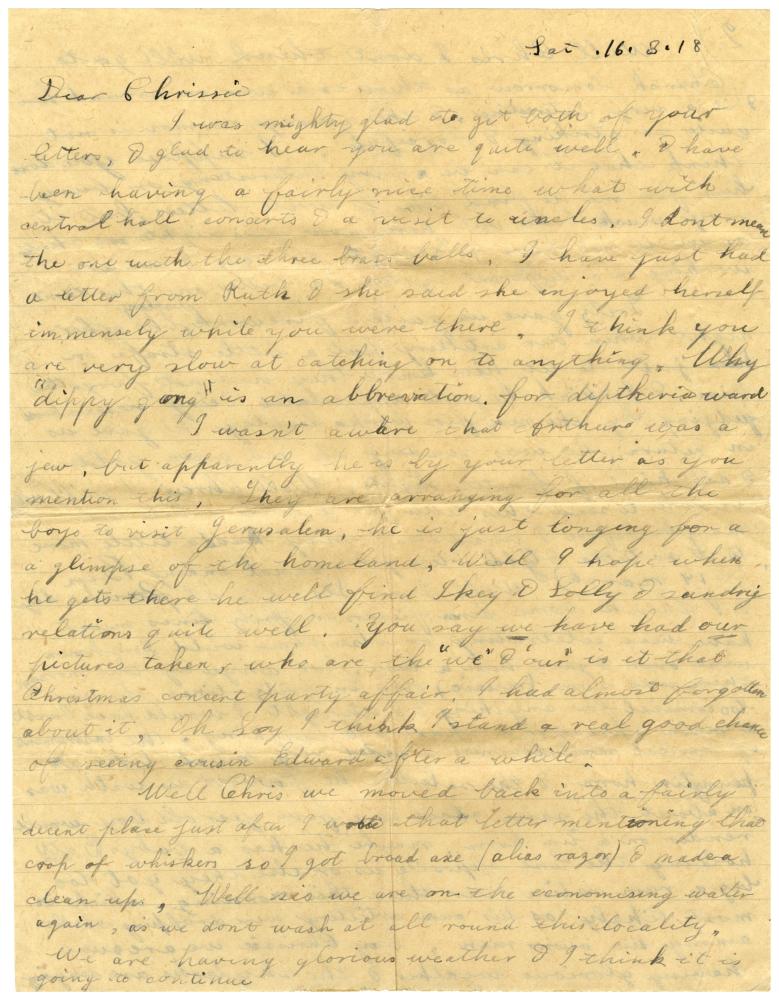 Sat .16.3.18
Dear Chrissie
I was mighty glad to get both of your
letters, & glad to hear you are quite well. I have
been having a fairly nice time what with
central hall concerts & a visit to uncles. I dont mean
the one with the three brass balls. I have just had
a letter from Ruth & she said she injoyed herself
immensely while you were there. I think you
are very slow at catching on to anything. Why
"dippy gong" is an abbreviation. for diptheria ward
I wasn't aware that Arthur was a
jew, but apparently he is by your letter as you
mention this. They are arranging for all the
boys to visit Jerusalem, he is just longing for a
a glimpse of the homeland, Well I hope when
he gets there he well find Ikey & Solly & sundrig
relations quite well. You say we have had our
pictures taken, who are the "we" & "our" is it that
Christmas concert party affair. I had almost forgotten
about it, Oh say I think I stand a real good chance
of seeing cousin Edward after a while.
Well Chris we moved back into a fairly
decent place just after I wrote that letter mentioning that
crop of whiskers so I got broad axe (alias razor) & made a
clean up, Well sis we are on the economising water
again, as we dont wash at all round this locality.
We are having glorious weather & I think it is
going to continue